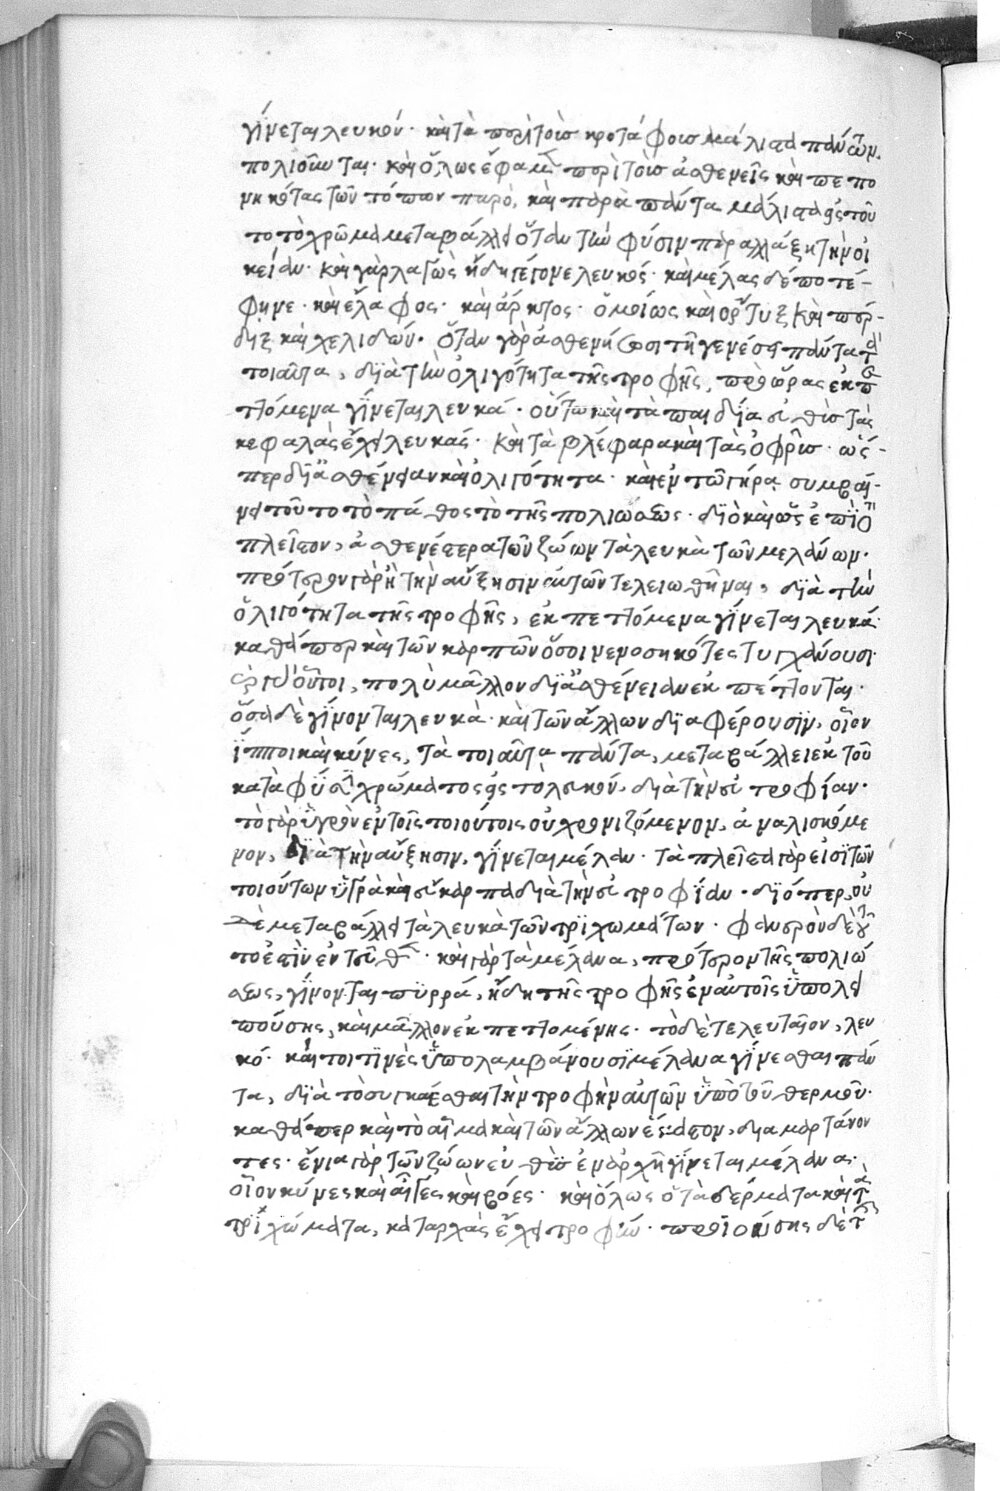 γίνεται λευκόν. καὶ τὰ περὶ τοῖς κροτάφοις μάλιστα πάντων
πολιοῦνται. καὶ ὅλως ἔφαμεν περὶ τοῖς ἀσθενεῖς καὶ πεπο
νηκότας τῶν τόπων πυρό, καὶ παρὰ πάντα μάλιστα εἰς τοῦ
το τὸ χρῶμα μεταβάλλει ὅταν τὴν φύσιν παραλλάξη τὴν οἰ
κείαν. καὶ γὰρ λαγὼς ἤδη γέγονε λευκός. καὶ μέλας δέ ποτε
φηνε. καὶ ἔλαφος. καὶ ἄρκτος. ὁμοίως καὶ ὄρτυξ καὶ πέρ-
διξ καὶ χελιδών. ὅταν γὰρ ἀσθενήσωσι τῇ γενέσει πάντα τὰ
τοιαῦτα, διὰ τὴν ὀλιγότητα τῆς τροφῆς, πρὸ ὥρας ἐκπε
ττόμενα γίνεται λευκά. οὕτω καὶ τὰ παιδία εὐθὺς τὰς
κεφαλὰς ἔχει λευκάς. καὶ τὰ βλέφαρα καὶ τὰς ὀφρῦς. ὥσ-
περ δι' ἀσθένειαν καὶ ὀλιγότητα. καὶ ἐν τῷ γήρᾳ συμβαί-
νει τοῦτο τὸ πάθος τὸ τῆς πολιώσεως. διὸ καὶ ὡς ἐπὶ τὸ
πλεῖστον, ἀσθενέστερα τῶν ζώων τὰ λευκὰ τῶν μελάνων.
πρότερον γὰρ ἢ τὴν αὔξησιν αὐτῶν τελειωθῆναι, διὰ τὴν
ὀλιγότητα τῆς τροφῆς, ἐκπεττόμενα γίνεται λευκά.
καθάπερ καὶ τῶν καρπῶν ὅσοι νενοσηκότες τυγχάνουσι.
οὗτοι, πολὺ μᾶλλον δι' ἀσθένειαν ἐκπέττονται.
ὅσα δὲ γίνονται λευκὰ. καὶ τῶν ἄλλων διαφέρουσιν, οἷον
ἵπποι καὶ κύνες, τὰ τοιαῦτα πάντα, μεταβάλλει ἐκ τοῦ
κατὰ φύσιν χρώματος εἰς τὸ λευκόν, διὰ τὴν εὐτροφίαν.
τὸ γὰρ ὑγρὸν ἐν τοῖς τοιούτοις οὐ χρονιζόμενον, ἀναλισκόμε
νον, διὰ τὴν αὔξησιν, γίνεται μέλαν. τὰ πλεῖστα γάρ εἰσι τῶν
τοιούτων ὑγρὰ καὶ εὔκαρπα διὰ τὴν εὐτροφίαν. διόπερ, οὐ
δὲ μεταβάλλει τὰ λευκὰ τῶν τριχωμάτων. φανερὸν δὲ τοῦ
το ἐστὶν ἐντεῦθεν. καὶ γὰρ τὰ μέλανα, πρότερον τῆς πολιώ
σεως, γίνονται πυρρά, ἤδη τῆς τροφῆς ἐν αὐτοῖς ὑπολει
πούσης, καὶ μᾶλλον ἐκπεττομένης. τὸ δὲ τελευταῖον, λευ
κά. καί τοι τινὲς ὑπολαμβάνουσι μέλανα γίνεσθαι πάν
τα, διὰ τὸ συγκαίεσθαι τὴν τροφὴν αὐτῶν ὑπὸ τοῦ θερμοῦ.
καθάπερ καὶ τὸ αἷμα καὶ τῶν ἄλλων ἕκαστον, διαμαρτάνον
τες. ἔνια γὰρ τῶν ζώων εὐθὺς ἐν ἀρχῇ γίνεται μέλανα.
οἷον κύνες καὶ αἶγες καὶ βόες. καὶ ὅλως ὅτα δέρματα καὶ τὰ
τριχώματα, καταρχὰς ἔχει τροφήν. προϊούσης δὲ τῆς